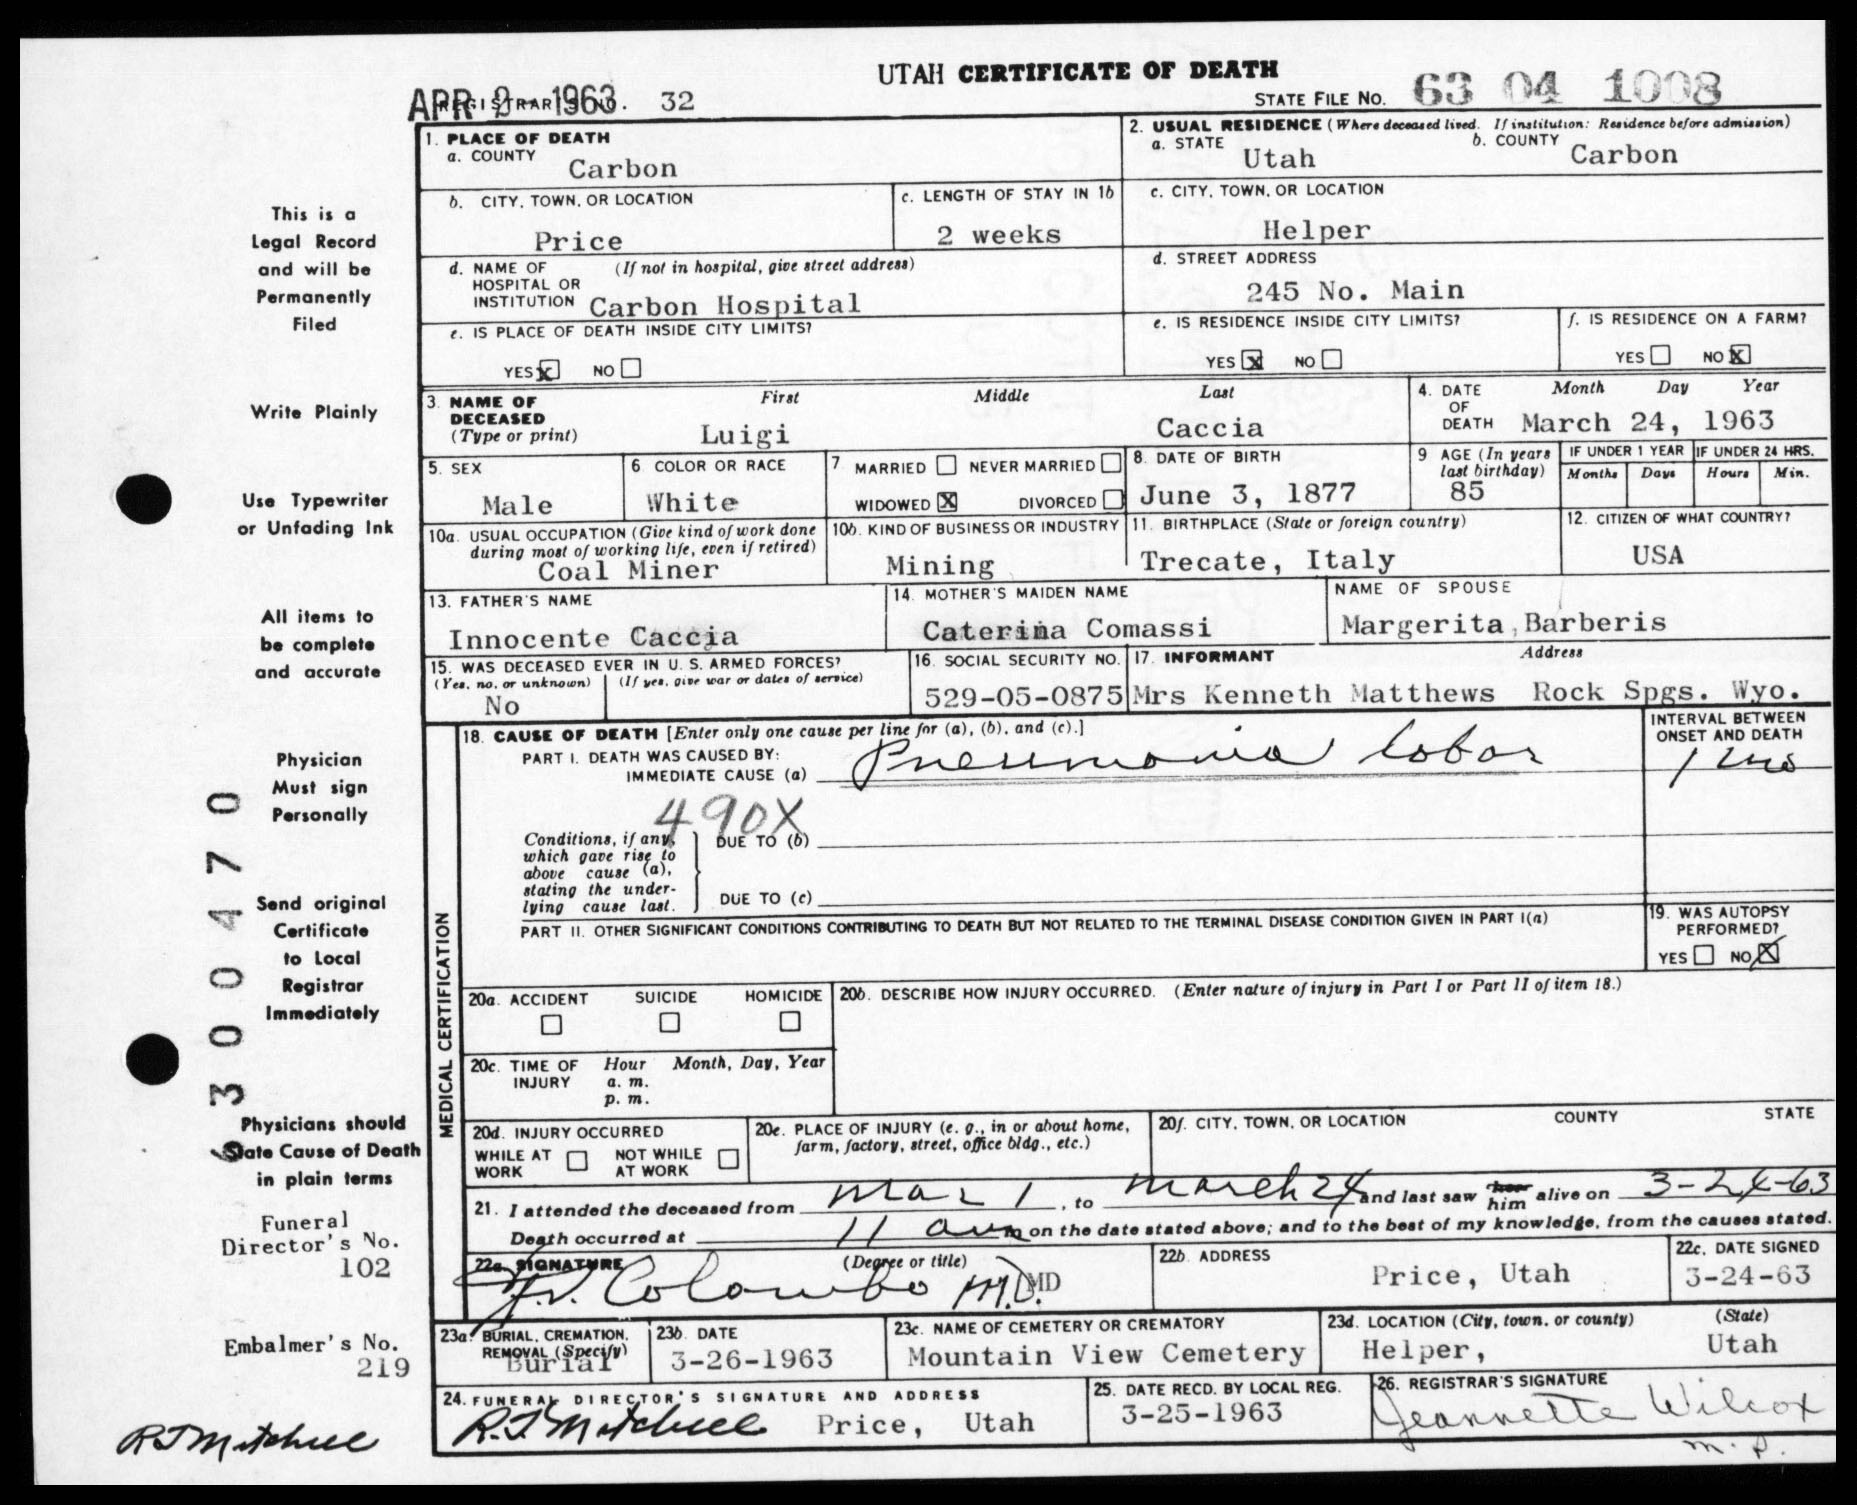 UTAH CERTIFICATE OF DEATH
APR 2 1963 REGISTRAR'S NO. 32
STATE FILE NO. 63 04 1008
1. PLACE OF DEATH
a. COUNTY Carbon
b. CITY, TOWN, OR LOCATION Price
c. LENGTH OF STAY IN 1b 2 weeks
d. NAME OF HOSPITAL OR INSTITUTION (If not in hospital, give street address) Carbon Hospital
e. IS PLACE OF DEATH INSIDE CITY LIMITS?
YES X NO
2. USUAL RESIDENCE (Where deceased lived. If institution: Residence before admission)
a. STATE Utah
b. COUNTY Carbon
c. CITY, TOWN, OR LOCATION Helper
d. STREET ADDRESS 245 No. Main
e. IS RESIDENCE INSIDE CITY LIMITS?
YES X NO
f. IS RESIDENCE ON A FARM?
YES NO X
3. NAME OF DECEASED (Type or print)
First Middle Last
Luigi Caccia
4. DATE OF DEATH Month Day Year
March 24, 1963
5. SEX Male
6. COLOR OR RACE White
7. MARRIED NEVER MARRIED
WIDOWED X DIVORCED
8. DATE OF BIRTH June 3, 1877
9. AGE (In years last birthday) 85
IF UNDER 1 YEAR Months Days
IF UNDER 24 HRS. Hours Min.
10a. USUAL OCCUPATION (Give kind of work done during most of working life, even if retired)
Coal Miner
10b. KIND OF BUSINESS OR INDUSTRY
Mining
11. BIRTHPLACE (State or foreign country)
Trecate, Italy
12. CITIZEN OF WHAT COUNTRY?
USA
13. FATHER'S NAME
Innocente Caccia
14. MOTHER'S MAIDEN NAME
Caterina Comassi
NAME OF SPOUSE
Margerita Barberis
15. WAS DECEASED EVER IN U. S. ARMED FORCES?
(Yes, no, or unknown) (If yes, give war or dates of service)
No
16. SOCIAL SECURITY NO.
529-05-0875
17. INFORMANT Address
Mrs Kenneth Matthews Rock Spgs. Wyo.
MEDICAL CERTIFICATION
18. CAUSE OF DEATH [Enter only one cause per line for (a), (b), and (c).]
PART I. DEATH WAS CAUSED BY:
IMMEDIATE CAUSE (a) Pneumonia lobar
INTERVAL BETWEEN ONSET AND DEATH
490X
Conditions, if any, which gave rise to above cause (a), stating the underlying cause last.
DUE TO (b)
DUE TO (c)
PART II. OTHER SIGNIFICANT CONDITIONS CONTRIBUTING TO DEATH BUT NOT RELATED TO THE TERMINAL DISEASE CONDITION GIVEN IN PART I(a)
19. WAS AUTOPSY PERFORMED?
YES NO X
20a. ACCIDENT SUICIDE HOMICIDE
20b. DESCRIBE HOW INJURY OCCURRED. (Enter nature of injury in Part I or Part II of item 18.)
20c. TIME OF INJURY Hour Month, Day, Year
a. m.
p. m.
20d. INJURY OCCURRED
WHILE AT WORK NOT WHILE AT WORK
20e. PLACE OF INJURY (e. g., in or about home, farm, factory, street, office bldg., etc.)
20f. CITY, TOWN, OR LOCATION COUNTY STATE
21. I attended the deceased from Mar 1, to March 24 and last saw her him alive on 3-24-63
Death occurred at 11 am m on the date stated above; and to the best of my knowledge, from the causes stated.
22a. SIGNATURE (Degree or title)
F.V. Colombo M.D. MD
22b. ADDRESS
Price, Utah
22c. DATE SIGNED
3-24-63
23a. BURIAL, CREMATION, REMOVAL (Specify)
Burial
23b. DATE
3-26-1963
23c. NAME OF CEMETERY OR CREMATORY
Mountain View Cemetery
23d. LOCATION (City, town, or county) (State)
Helper, Utah
24. FUNERAL DIRECTOR'S SIGNATURE AND ADDRESS
R.J. Mitchell Price, Utah
25. DATE RECD. BY LOCAL REG.
3-25-1963
26. REGISTRAR'S SIGNATURE
Jeannette Wilcox
m. p.
This is a
Legal Record
and will be
Permanently
Filed
Write Plainly
Use Typewriter
or Unfading Ink
All items to
be complete
and accurate
Physician
Must sign
Personally
Send original
Certificate
to Local
Registrar
Immediately
Physicians should
State Cause of Death
in plain terms
Funeral
Director's No.
102
Embalmer's No.
219
RJ Mitchell
6300470